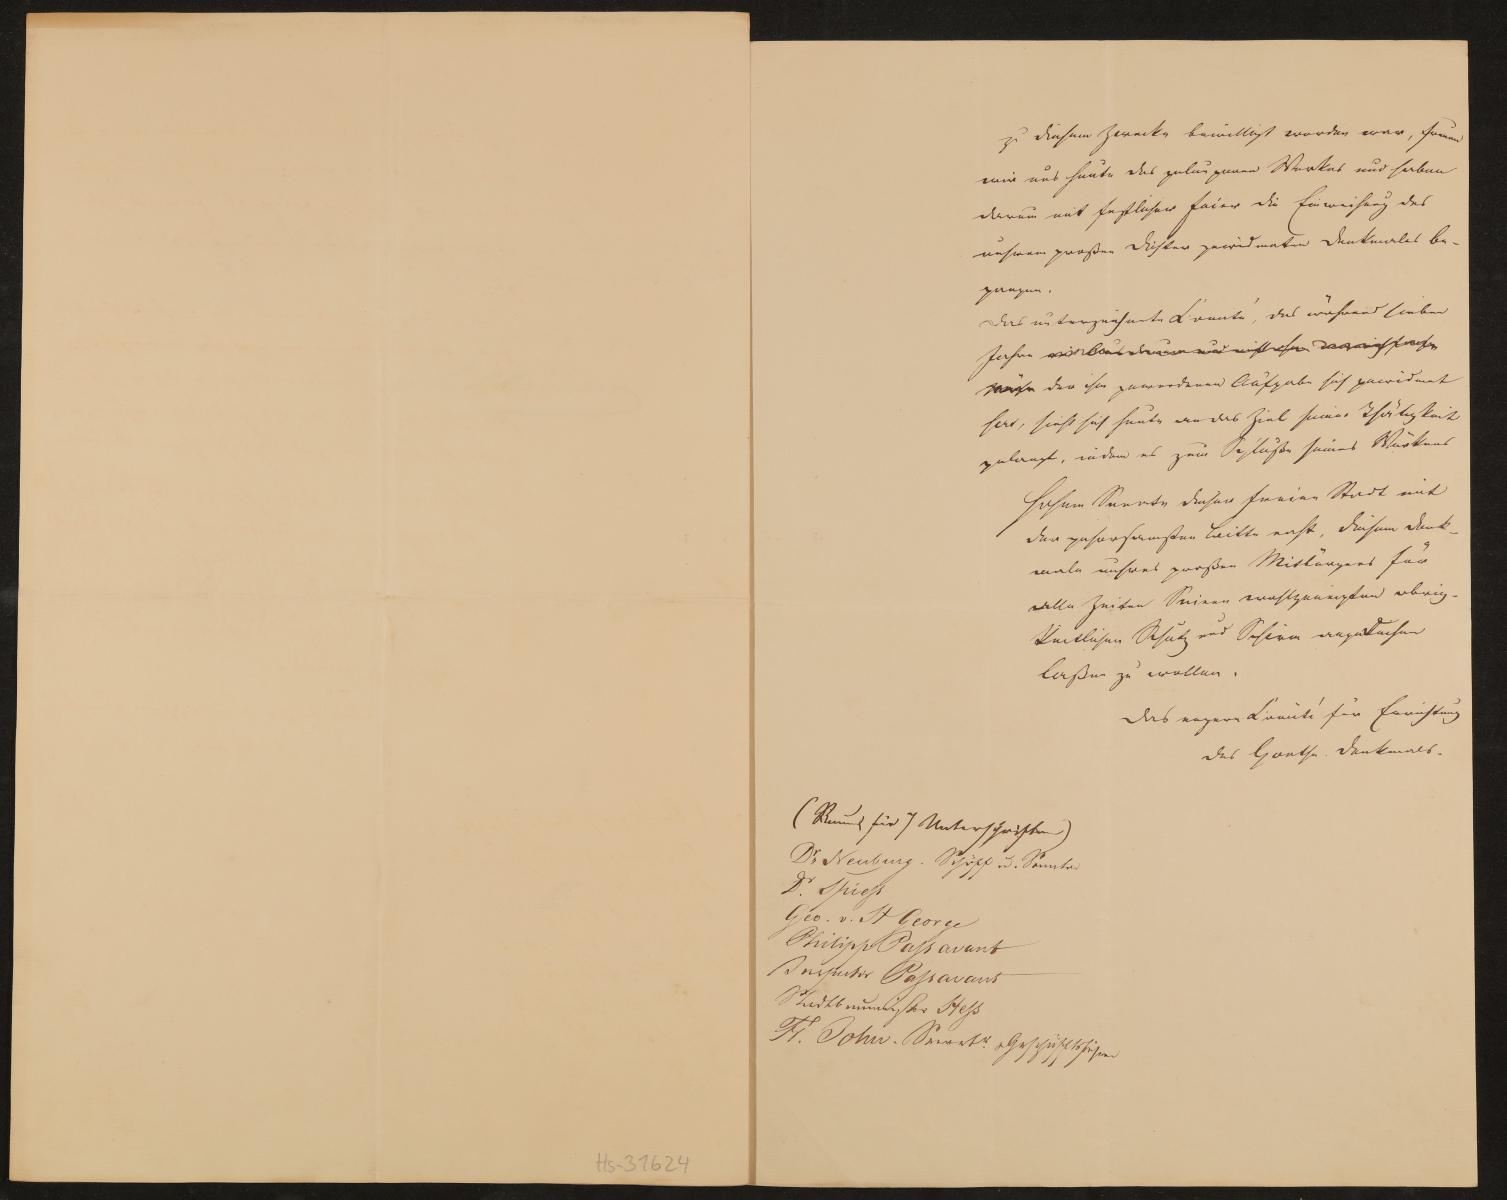 zu diesem Zwecke bewilligt worden war, freuen
wir uns heute des gelungenen Werkes und haben
darum mit festlicher Feier die Einweihung des
unsrem großen Dichter gewidmeten Denkmales be-
gangen.
Das unterzeichnete Comité, das während sieben
Jahren
der ihm gewordenen Aufgabe sich gewidmet
hat, sieht sich heute an das Ziel seiner Thätigkeit
gelangt, indem es zum Schluße seines Wirkens
Hohem Senate dieser freien Stadt mit
der gehorsamsten Bitte naht, diesem Denk-
male unsres großen Mitbürgers für
alle Zeiten Seinen wohlgeneigten obrig-
keitlichen Schutz und Schirm angedeihen
laßen zu wollen.
Das engere Comité für Errichtung
des Goethe-Denkmals.
(Raum für 7 Unterschriften)
Dr. Neuburg. Schöff u. Senator
Dr. Spiess
Geo. v. St George
Philipp Passavant
Inspector Passavant
Stadtbaumeister Hess
Fr. John. Secretr. Geschäftsführer
Hs-31624